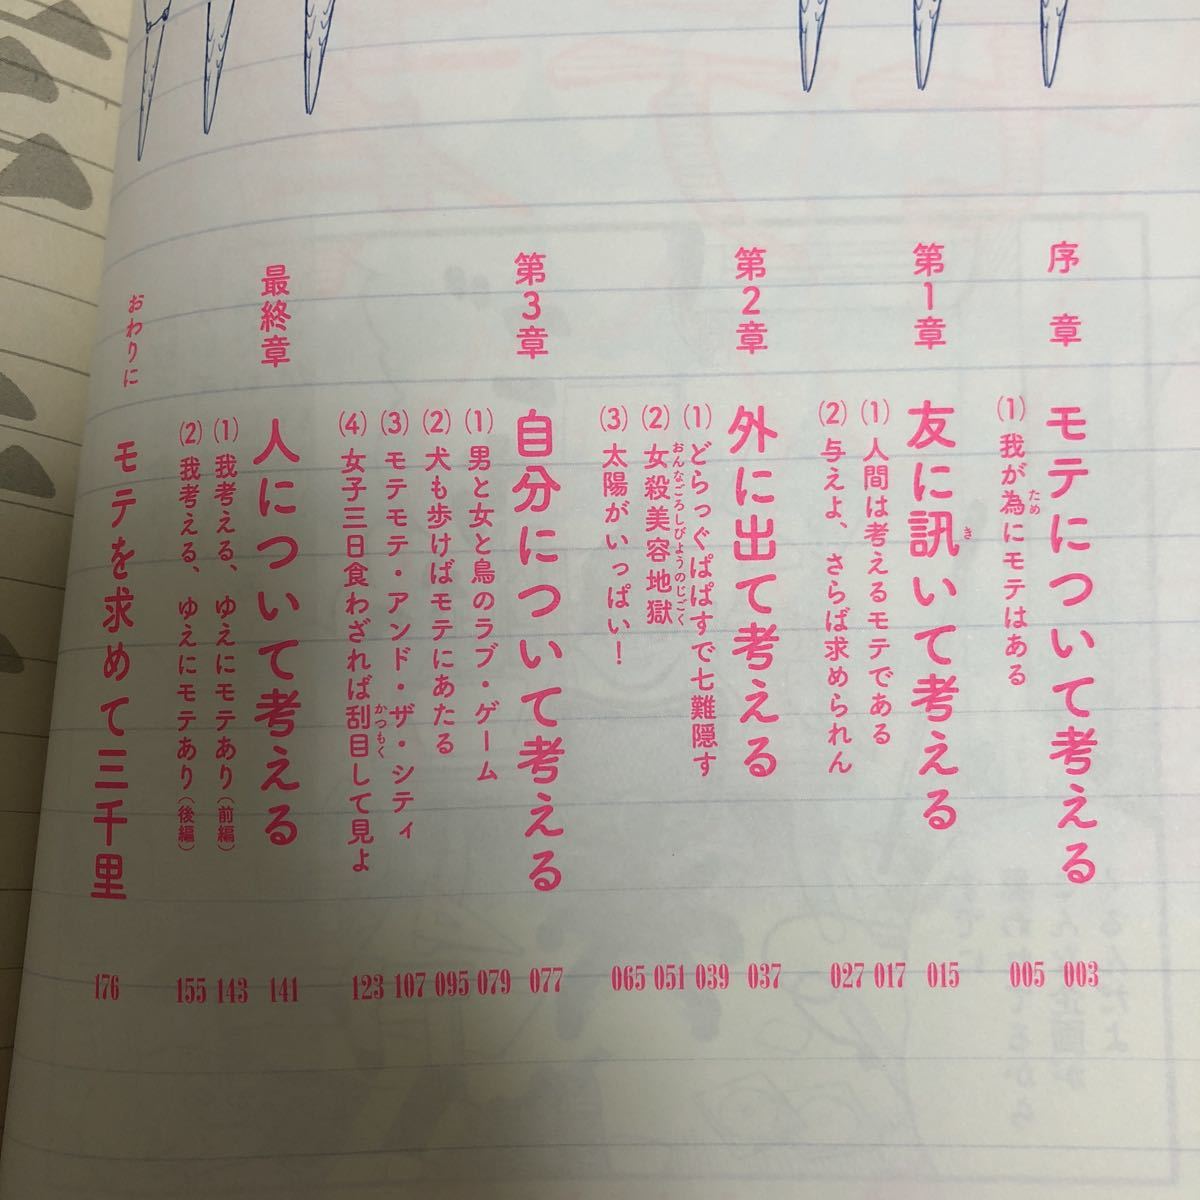 序章 モテについて考える 003
(1) 我が為にモテはある 005
ため
第1章 友に訊いて考える 015
き
(1) 人間は考えるモテである 017
(2) 与えよ、さらば求められん 027
第2章 外に出て考える 037
(1) どらっぐぱぱすで七難隠す 039
(2) 女殺美容地獄 051
おんなごろしびようのじごく
(3) 太陽がいっぱい！ 065
第3章 自分について考える 077
(1) 男と女と鳥のラブ・ゲーム 079
(2) 犬も歩けばモテにあたる 095
(3) モテモテ・アンド・ザ・シティ 107
(4) 女子三日食わざれば刮目して見よ 123
かつもく
最終章 人について考える 141
(1) 我考える、ゆえにモテあり(前編) 143
(2) 我考える、ゆえにモテあり(後編) 155
おわりに モテを求めて三千里 176